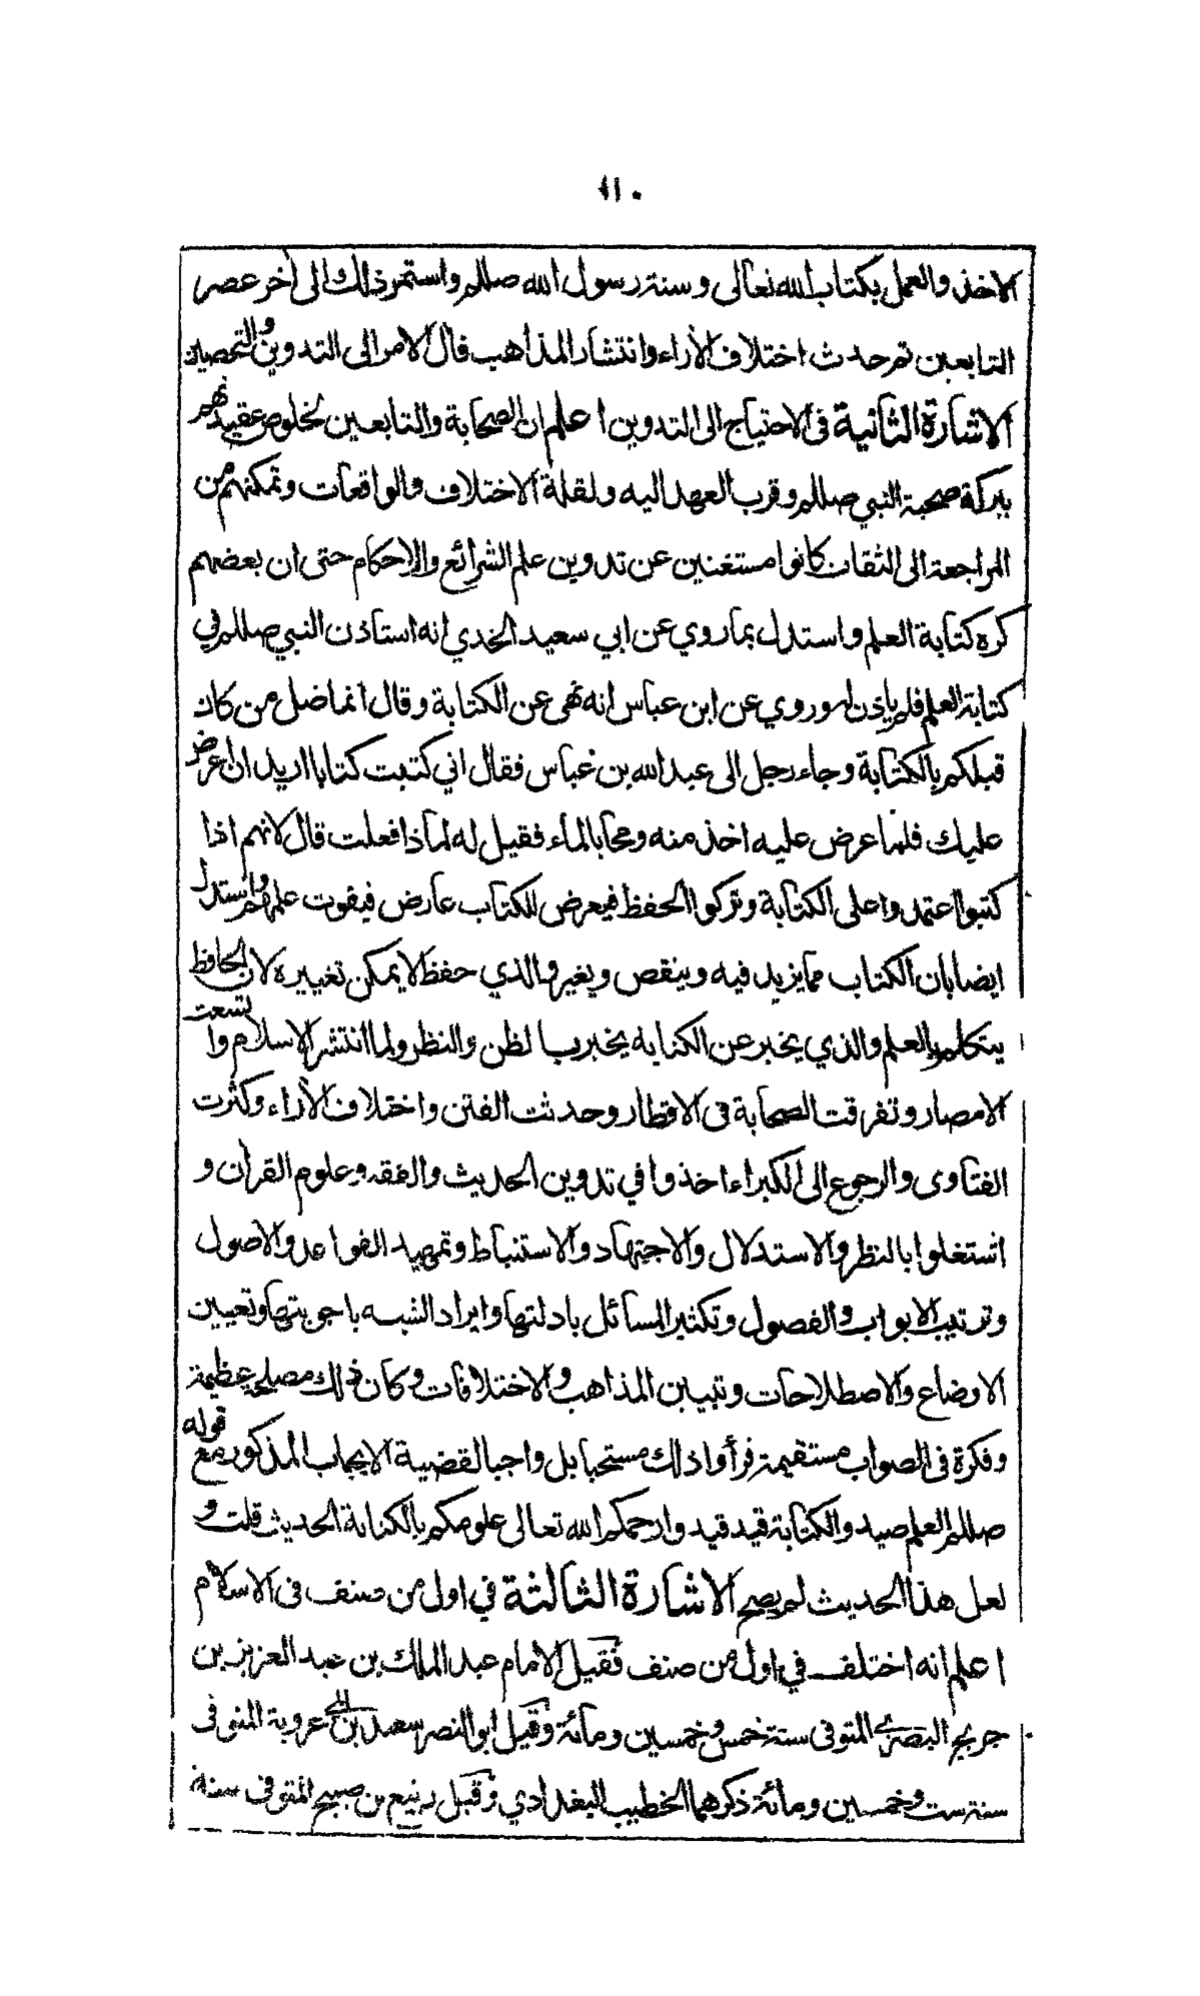 ١١٠
الاخذ والعمل بكتاب الله تعالى وسنة رسول الله صللم واستمر ذلك الى آخر عصر
التابعين ثم حدث اختلاف الأراء وانتشار المذاهب فآل الامر الى التدوين والتحصين
الاشارة الثانية فى الاحتياج الى التدوين اعلم ان الصحابة والتابعين لخلوص عقيدتهم
ببركة صحبة النبي صللم وقرب العهد اليه ولقلة الاختلاف والواقعات وتمكنهم من
المراجعة الى الثقات كانوا مستغنين عن تدوين علم الشرائع والاحكام حتى ان بعضهم
كره كتابة العلم واستدل بما روي عن ابي سعيد الخدي انه استاذن النبي صللم في
كتابة العلم فلم ياذن له وروي عن ابن عباس انه نهى عن الكتابة وقال انما ضل من كان
قبلكم بالكتابة وجاء رجل الى عبد الله بن عباس فقال اني كتبت كتابا اريد ان اعرض
عليك فلما عرض عليه اخذ منه ومحا بالماء فقيل له لما ذا فعلت قال لانهم اذا
كتبوا اعتمدوا على الكتابة وتركوا الحفظ فيعرض للكتاب عارض فيفوت علمهم واستدل
ايضا بان الكتاب مما يزيد فيه وينقص ويغير والذي حفظ لا يمكن تغييره لان الحافظ
يتكلم بالعلم والذي يخبر عن الكتابه يخبر بالظن والنظر ولما انتشر الاسلام واتسعت
الامصار وتفرقت الصحابة فى الاقطار وحدثت الفتن واختلاف الأراء وكثرت
الفتاوى والرجوع الى الكبراء اخذوا في تدوين الحديث والفقه وعلوم القرأن و
اشتغلوا بالنظر والاستدلال والاجتهاد والاستنباط وتمهيد القواعد والاصول
وترتيب الابواب والفصول وتكثير المسائل بادلتها وايراد الشبه باجوبتها وتعيين
الاوضاع والاصطلاحات وتبيين المذاهب والاختلافات وكان ذلك مصلحة عظيمة
وفكرة فى الصواب مستقيمة فرأوا ذلك مستحبا بل واجبا لقضية الايجاب المذكور مع قوله
صللم العلم صيد والكتابة قيد قيدوا رحمكم الله تعالى علومكم بالكتابة الحديث قلت و
لعل هذا الحديث لم يصح الاشارة الثالثة في اول من صنف فى الاسلام
اعلم انه اختلف في اول من صنف فقيل الامام عبد الملك بن عبد العزيز بن
جريج البصري المتوفى سنة خمس وخمسين ومائة وقيل ابو النصر سعيد بن ابي عروبة المتوفى
سنة ست وخمسين ومائة ذكرهما الخطيب البغدادي وقيل ربيع بن صبيح المتوفى سنة